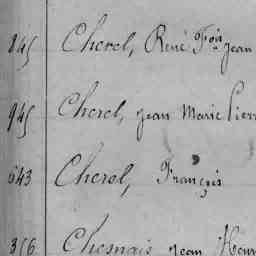 845 Cherel, René Fois Jean
945 Cherel, Jean Marie Pierr
643 Cherel, François
356 Chesnais Jean Henr